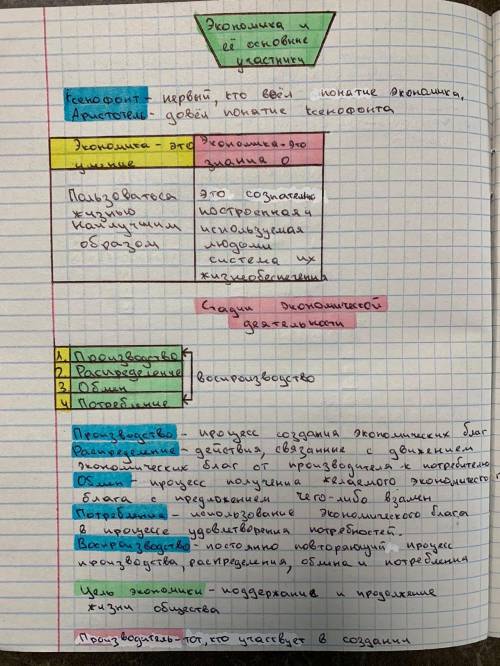 Экономика и
её основные
участники
Ксенофонт - первый, кто ввёл понятие экономика.
Аристотель - довёл понятие Ксенофонта
Экономика - это
умение
Экономика - это
знания о
Пользоваться
жизнью
наилучшим
образом
это сознательно
построенная и
используемая
людьми
система их
жизнеобеспечения
Стадии экономической
деятельности
1. Производство
2. Распределение
3. Обмен
4. Потребление
воспроизводство
Производство - процесс создания экономических благ
Распределение - действия, связанные с движением
экономических благ от производителя к потребителю
Обмен - процесс получения желаемого экономического
блага с предложением чего-либо взамен
Потребления - использование экономического блага
в процессе удовлетворения потребностей.
Воспроизводство - постоянно повторяющий процесс
производства, распределения, обмена и потребления
Цель экономики - поддержание и продолжение
жизни общества
Производитель - тот, кто участвует в создании